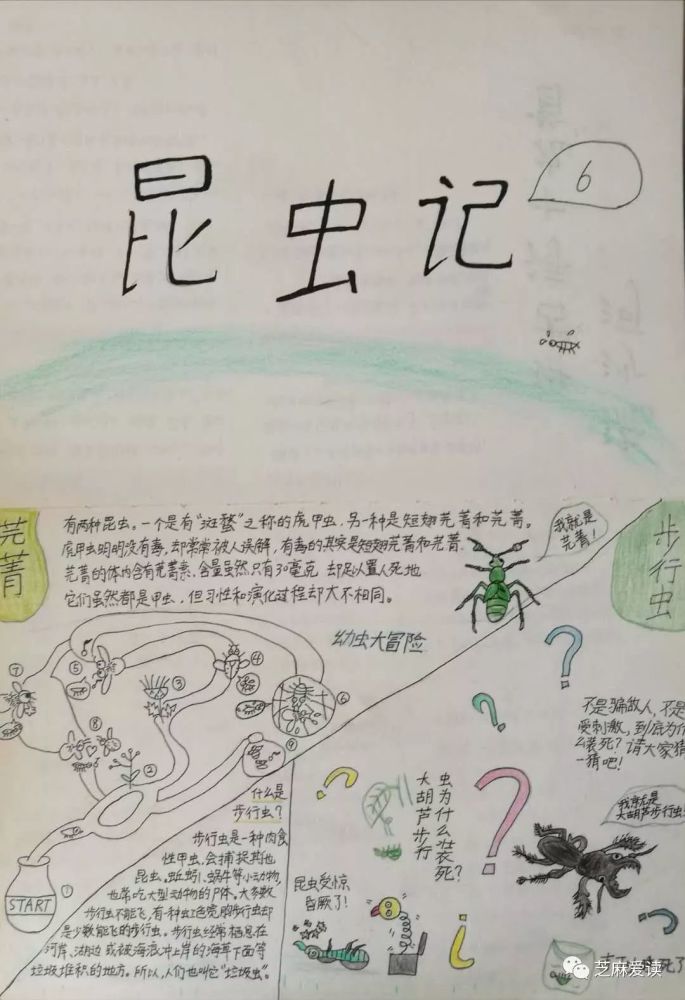 昆虫记
6
芫菁
有两种昆虫。一个是有"斑蝥"之称的虎甲虫，另一种是短翅芫菁和芫菁。
虎甲虫明明没有毒，却常常被人误解，有毒的其实是短翅芫菁和芫菁.
芫菁的体内含有芫菁素，含量虽然只有30毫克 却足以置人死地
它们虽然都是甲虫，但习性和演化过程却大不相同。
我就是
芫菁！
步行虫
幼虫大冒险
①
②
③
④
⑤
⑥
⑦
⑧
⑨
START
什么是
步行虫？
步行虫是一种肉食
性甲虫，会捕捉其他
昆虫、蚯蚓、蜗牛等小动物，
也常吃大型动物的尸体。大多数
步行虫不能飞，有一种虹色宽胸步行虫却
是少数能飞的步行虫。步行虫经常栖息在
河岸、湖边或被海浪冲上岸的海草下面等
垃圾堆积的地方。所以，人们也叫它"垃圾虫"。
不是骗敌人，不是
受刺激，到底为什
么装死？请大家猜
一猜吧！
大胡芦步行
虫为什么装死？
我就是
大胡芦步行虫
昆虫受惊
昏厥了！
死了
芝麻爱读